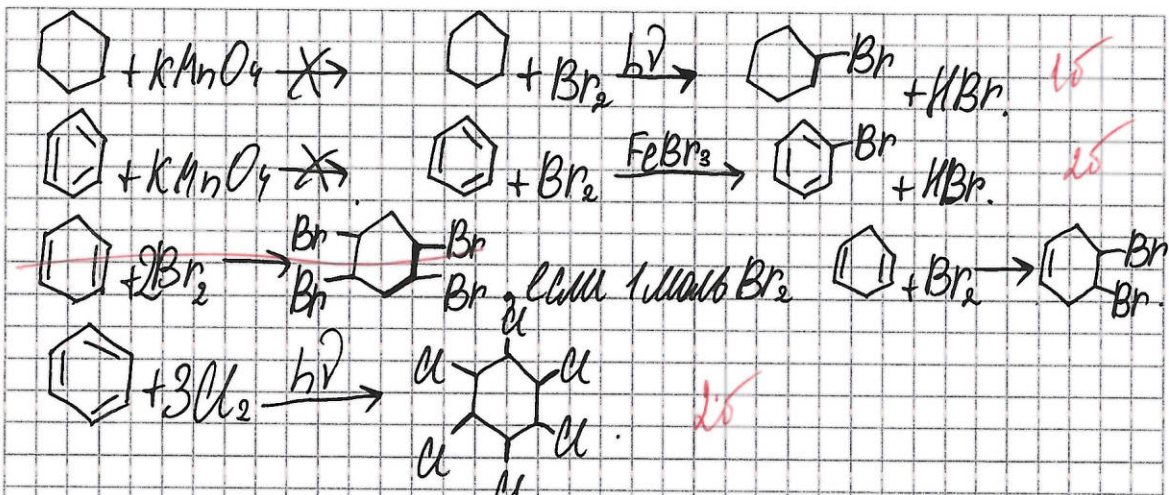 + KMnO₄ + Br₂ hν Br + HBr. 1б
+ KMnO₄ . + Br₂ FeBr₃ Br + HBr. 2б
Br Br Br
+2Br₂ Br Br, если 1 моль Br₂ + Br₂ Br.
+3Cl₂ hν Cl Cl Cl Cl Cl Cl . 2б